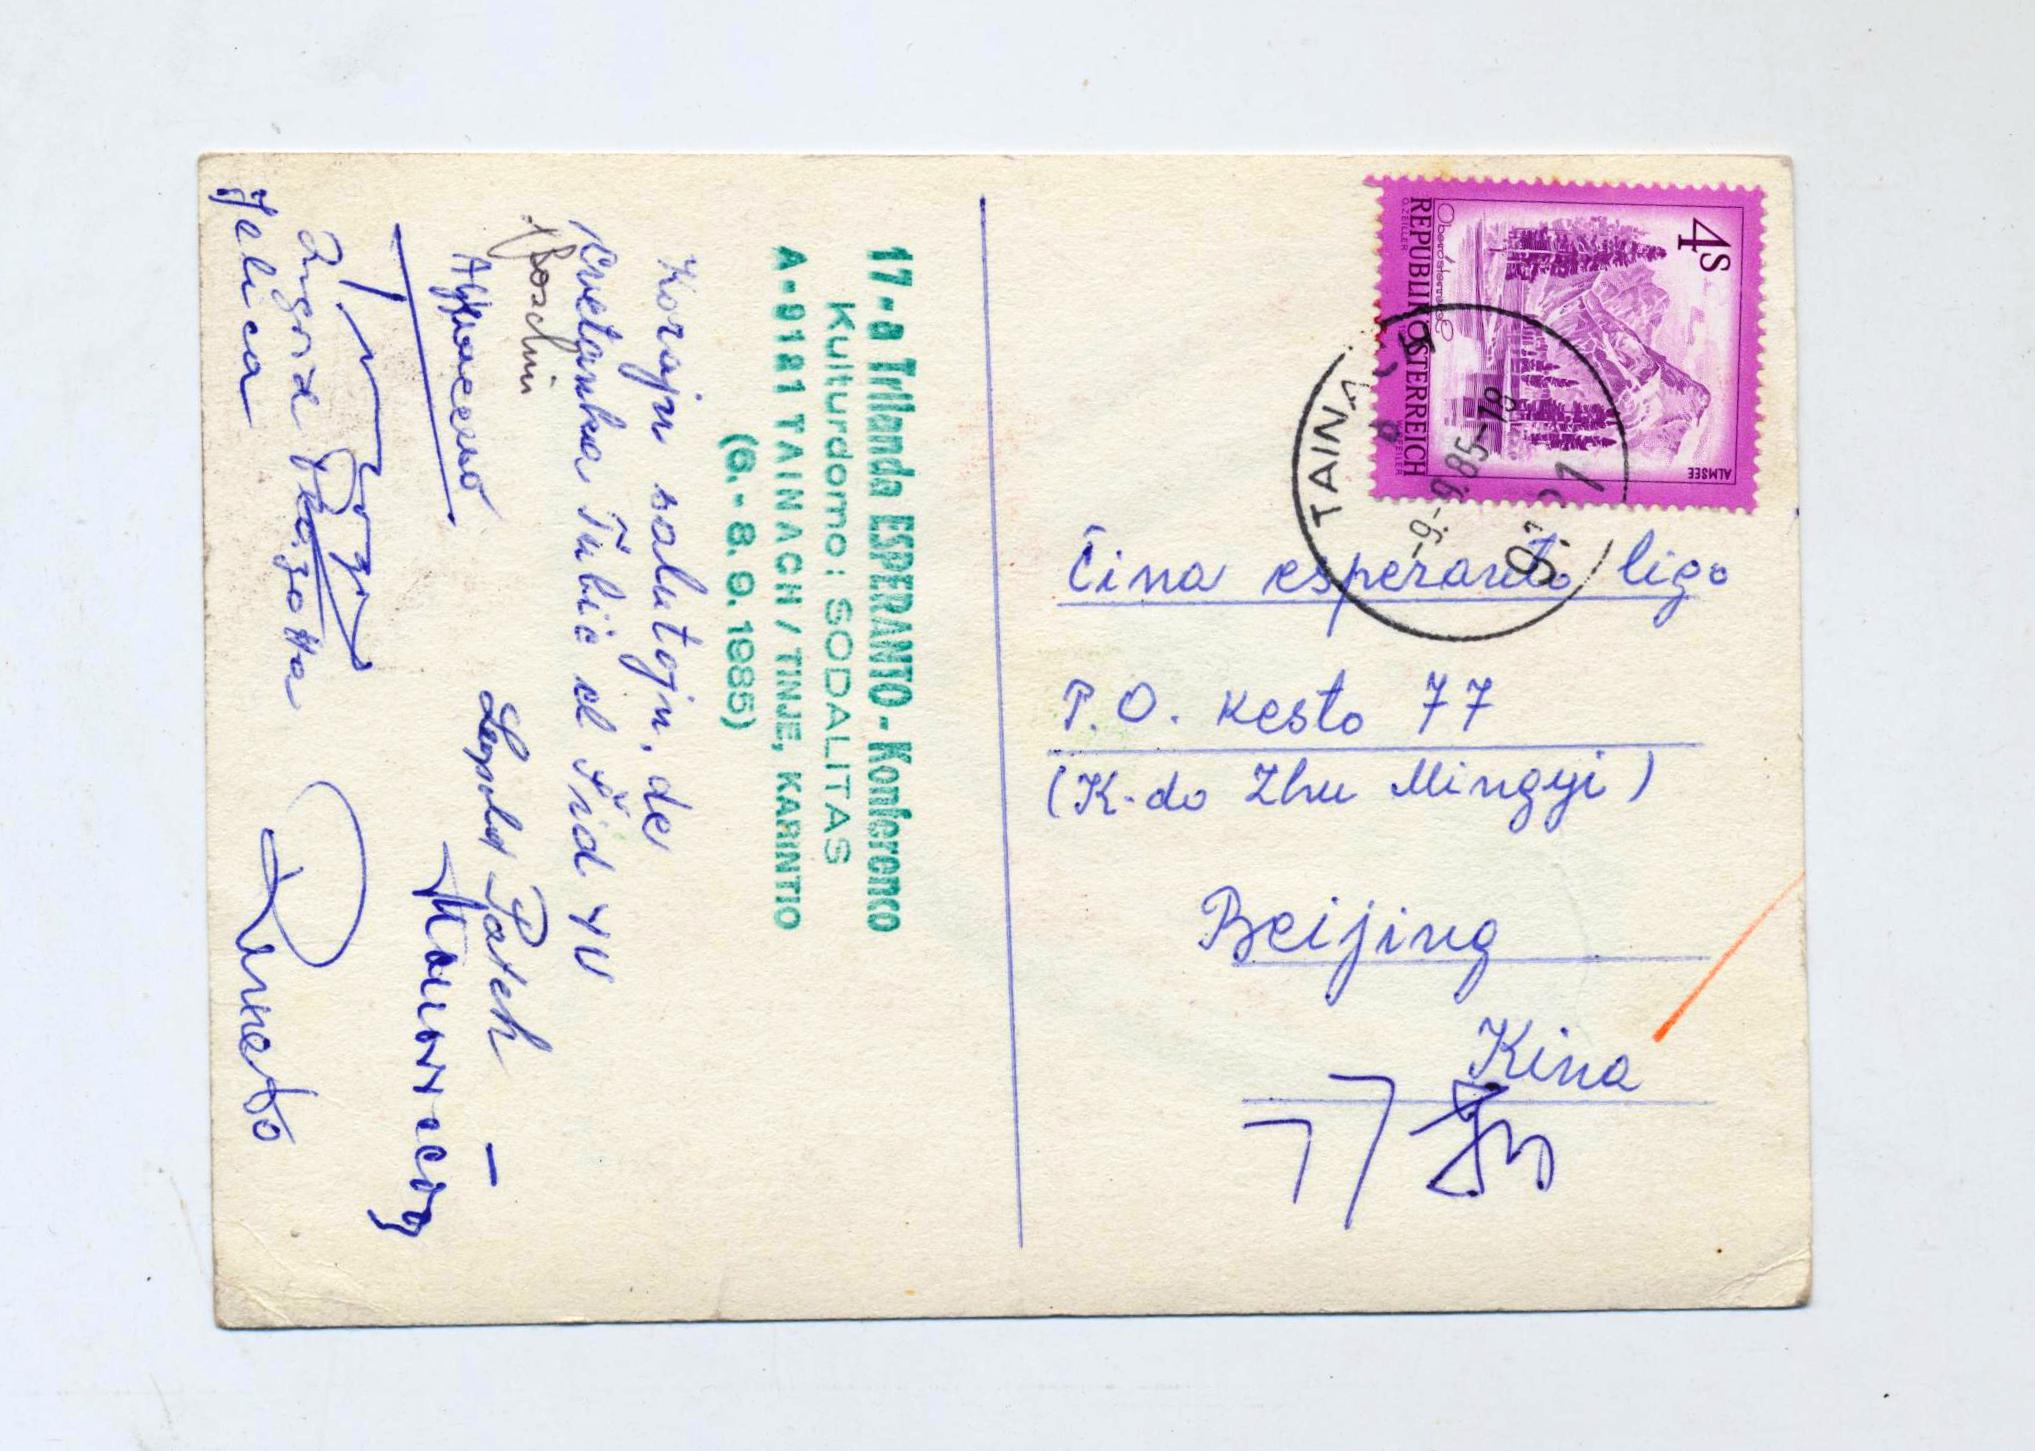 17-a Trilanda ESPERANTO-Konferenco
Kulturdomo: SODALITAS
A-9121 TAINACH / TINJE, KARINTIO
(6.-8.9.1985)
Korajn salutojn, de
Cvetanka Tubić el Šid YU
Leopold Patek
Jelica
4s
REPUBLIK ÖSTERREICH
Oberösterreich
ALMSEE
TAINACH
-9.-9.85-18
9121
Ĉina esperanto ligo
P.O. kesto 77
(K-do Zhu Mingyi)
Beijing
Kina